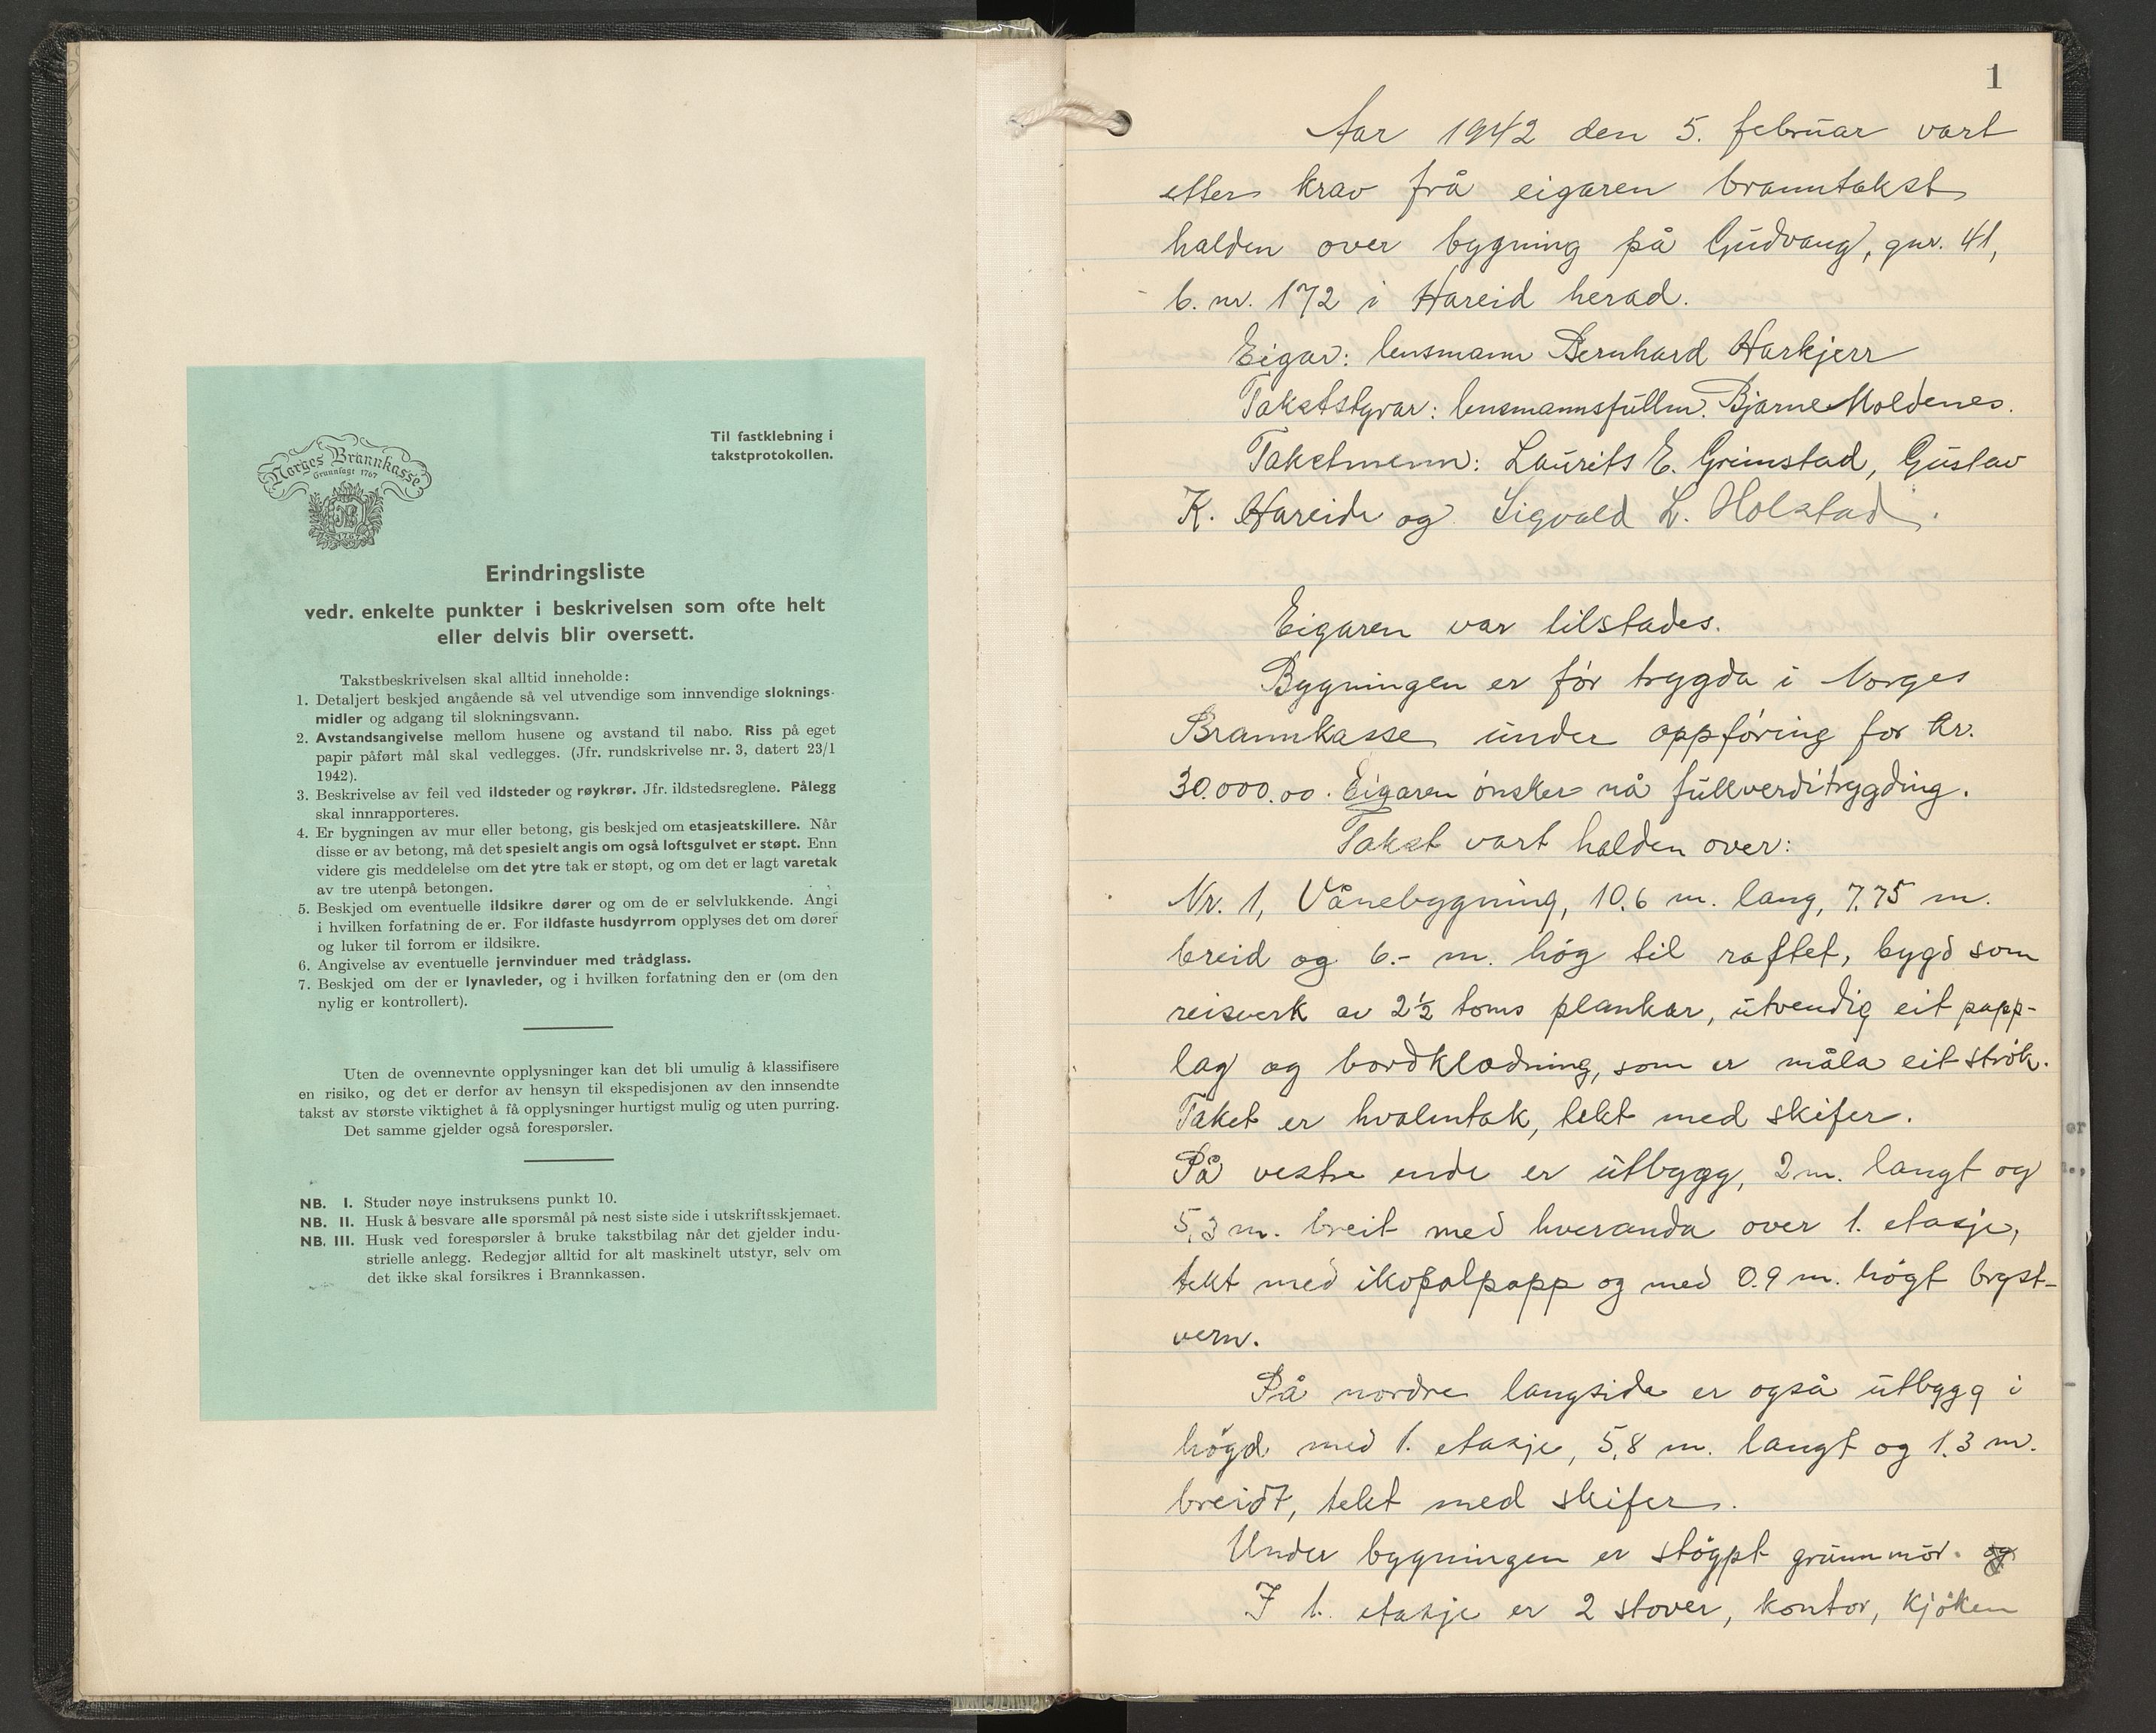 Til fastklebning i
takstprotokollen.
Norges Brannkasse
Grunnlagt 1767
Erindringsliste
vedr. enkelte punkter i beskrivelsen som ofte helt
eller delvis blir oversett.
Takstbeskrivelsen skal alltid inneholde:
1. Detaljert beskjed angående så vel utvendige som innvendige sloknings-
midler og adgang til slokningsvann.
2. Avstandsangivelse mellom husene og avstand til nabo. Riss på eget
papir påført mål skal vedlegges. (Jfr. rundskrivelse nr. 3, datert 23/1
1942).
3. Beskrivelse av feil ved ildsteder og røykrør. Jfr. ildstedsreglene. Pålegg
skal innrapporteres.
4. Er bygningen av mur eller betong, gis beskjed om etasjeatskillere. Når
disse er av betong, må det spesielt angis om også loftsgulvet er støpt. Enn
videre gis meddelelse om det ytre tak er støpt, og om det er lagt varetak
av tre utenpå betongen.
5. Beskjed om eventuelle ildsikre dører og om de er selvlukkende. Angi
i hvilken forfatning de er. For ildfaste husdyrrom opplyses det om dører
og luker til forrom er ildsikre.
6. Angivelse av eventuelle jernvinduer med trådglass.
7. Beskjed om der er lynavleder, og i hvilken forfatning den er (om den
nylig er kontrollert).
Uten de ovennevnte opplysninger kan det bli umulig å klassifisere
en risiko, og det er derfor av hensyn til ekspedisjonen av den innsendte
takst av største viktighet å få opplysninger hurtigst mulig og uten purring.
Det samme gjelder også forespørsler.
NB. I. Studer nøye instruksens punkt 10.
NB. II. Husk å besvare alle spørsmål på nest siste side i utskriftsskjemaet.
NB. III. Husk ved forespørsler å bruke takstbilag når det gjelder indu-
strielle anlegg. Redegjør alltid for alt maskinelt utstyr, selv om
det ikke skal forsikres i Brannkassen.
1
Aar 1942 den 5. februar vart
etter krav frå eigaren branntakst
halden over bygning på Gudvang, gnr. 41,
b. nr. 172 i Hareid herad.
Eigar: lensmann Bernhard Harkjerr
Takststyrar: lensmannsfullm. Bjarne Moldenes.
Takstmenn: Laurits E. Grimstad, Gustav
K. Hareide og Sigvald L. Holstad.
Eigaren var tilstades.
Bygningen er før trygda i Norges
Brannkasse under oppføring for kr.
30.000.00. Eigaren ønsker nå fullverditrygding.
Takst vart halden over:
Nr. 1, Vånebygning, 10.6 m. lang, 7.75 m.
breid og 6.- m. høg til raftet, bygd som
reisverk av 2½ toms plankar, utvendig eit papp-
lag og bordklædning, som er måla eit strøk.
Taket er hvalmtak, tekt med skifer.
På vestre ende er utbygg, 2 m. langt og
5,3 m. breit med hveranda over 1. etasje,
tekt med ikopalpapp og med 0.9 m. høgt bryst-
vern.
På nordre langside er også utbygg i
høgd med 1. etasje, 5,8 m. langt og 1.3 m.
breidt, tekt med skifer.
Under bygningen er støypt grunnmur. og
I 1. etasje er 2 stover, kontor, kjøken
er